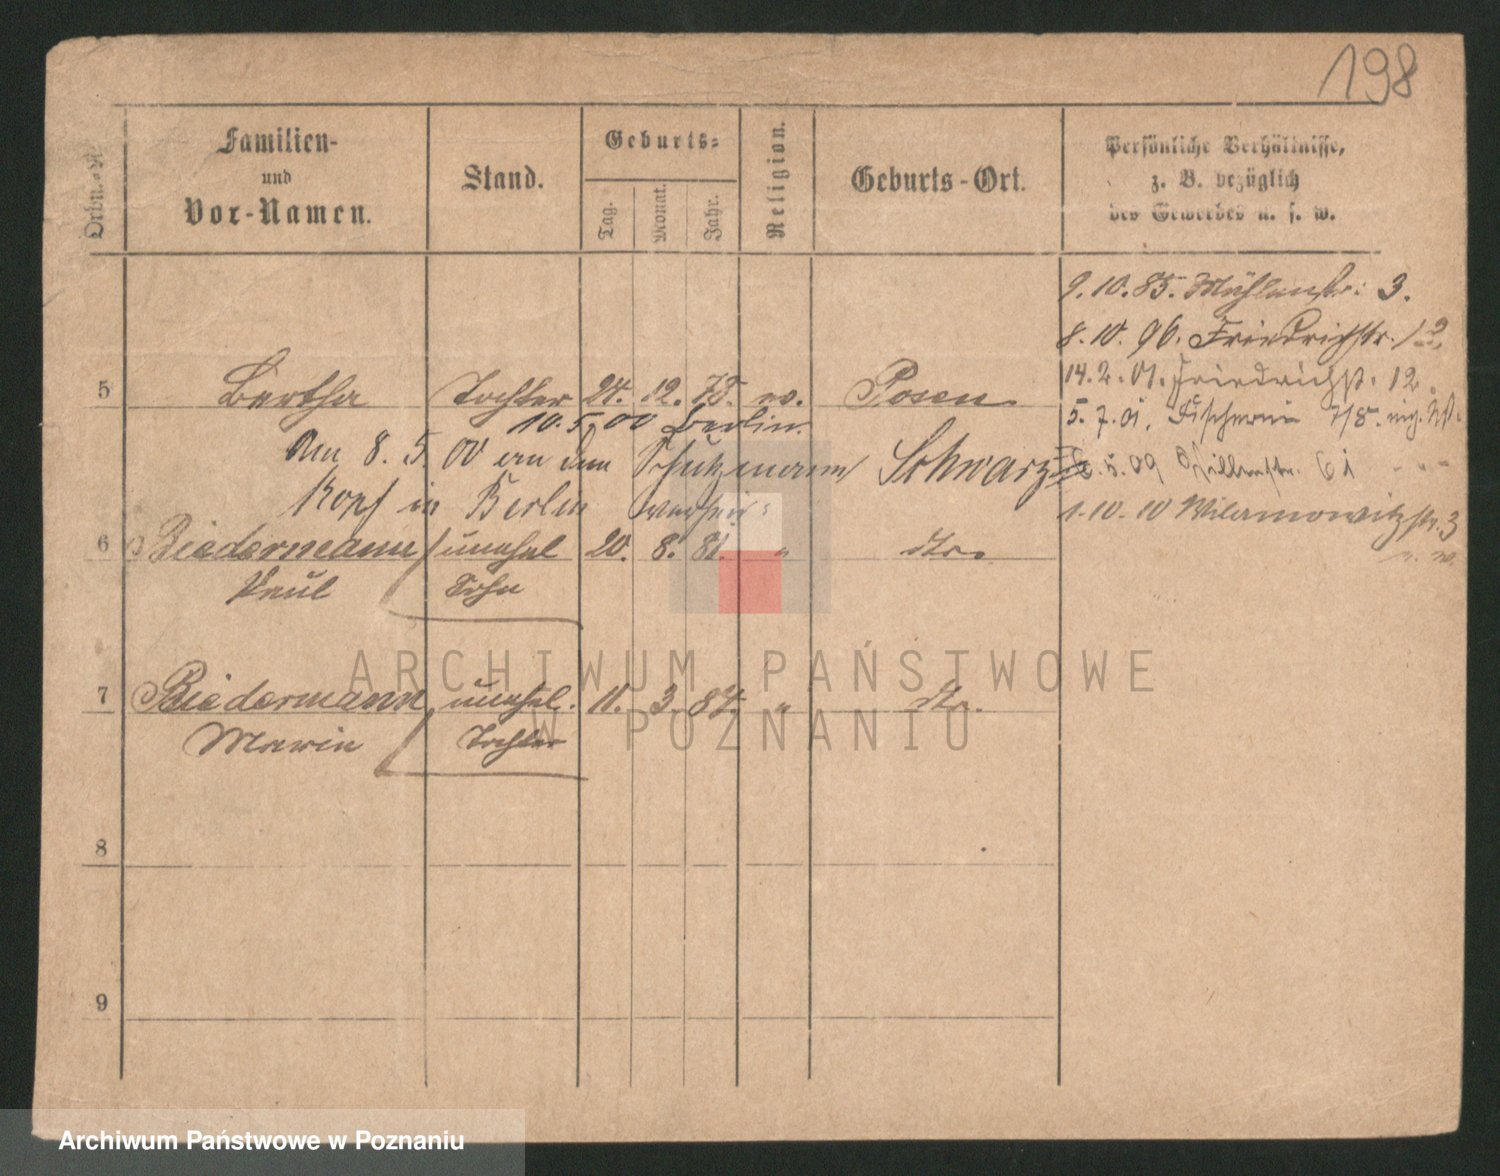 198
Ordn.-N.
Familien-
und
Vor-Namen.
Stand.
Geburts-
Tag.
Monat.
Jahr.
Religion.
Geburts-Ort.
Persönliche Verhältnisse,
z. B. bezüglich
des Gewerbes u. s. w.
9.10.85. Mühlenstr. 3.
8.10.96. Friedrichstr. 12
14.2.01. Friedrichst. 12.
5 Bertha Tochter 24. 12. 75. ev. Posen
5.7.01. Fischerei 7/8.
10.5.00 Berlin.
Am 8. 5. 00 an den Schutzmann Schwarz
5.09 61
Kopf in Berlin verheir:
1.10.10 Wilamowitzstr. 3
6 Biedermann unehel 20. 8. 81. " dto.
Paul Sohn
7 Biedermann unehel. 11. 3. 87. " dto.
Marie Tochter
8
9
ARCHIWUM PAŃSTWOWE
W POZNANIU
Archiwum Państwowe w Poznaniu